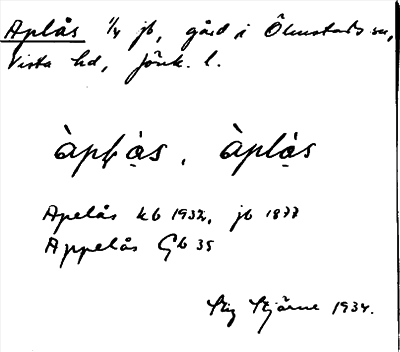 Aplås 1/4 jb, gård i Ölmstads sn,
Vista hd, Jönk. l.
àpłạ̀s, àplạ̀s
Apelås kb 1932, jb 1877
Appelås Gb 35
Stig Stjärne 1934.